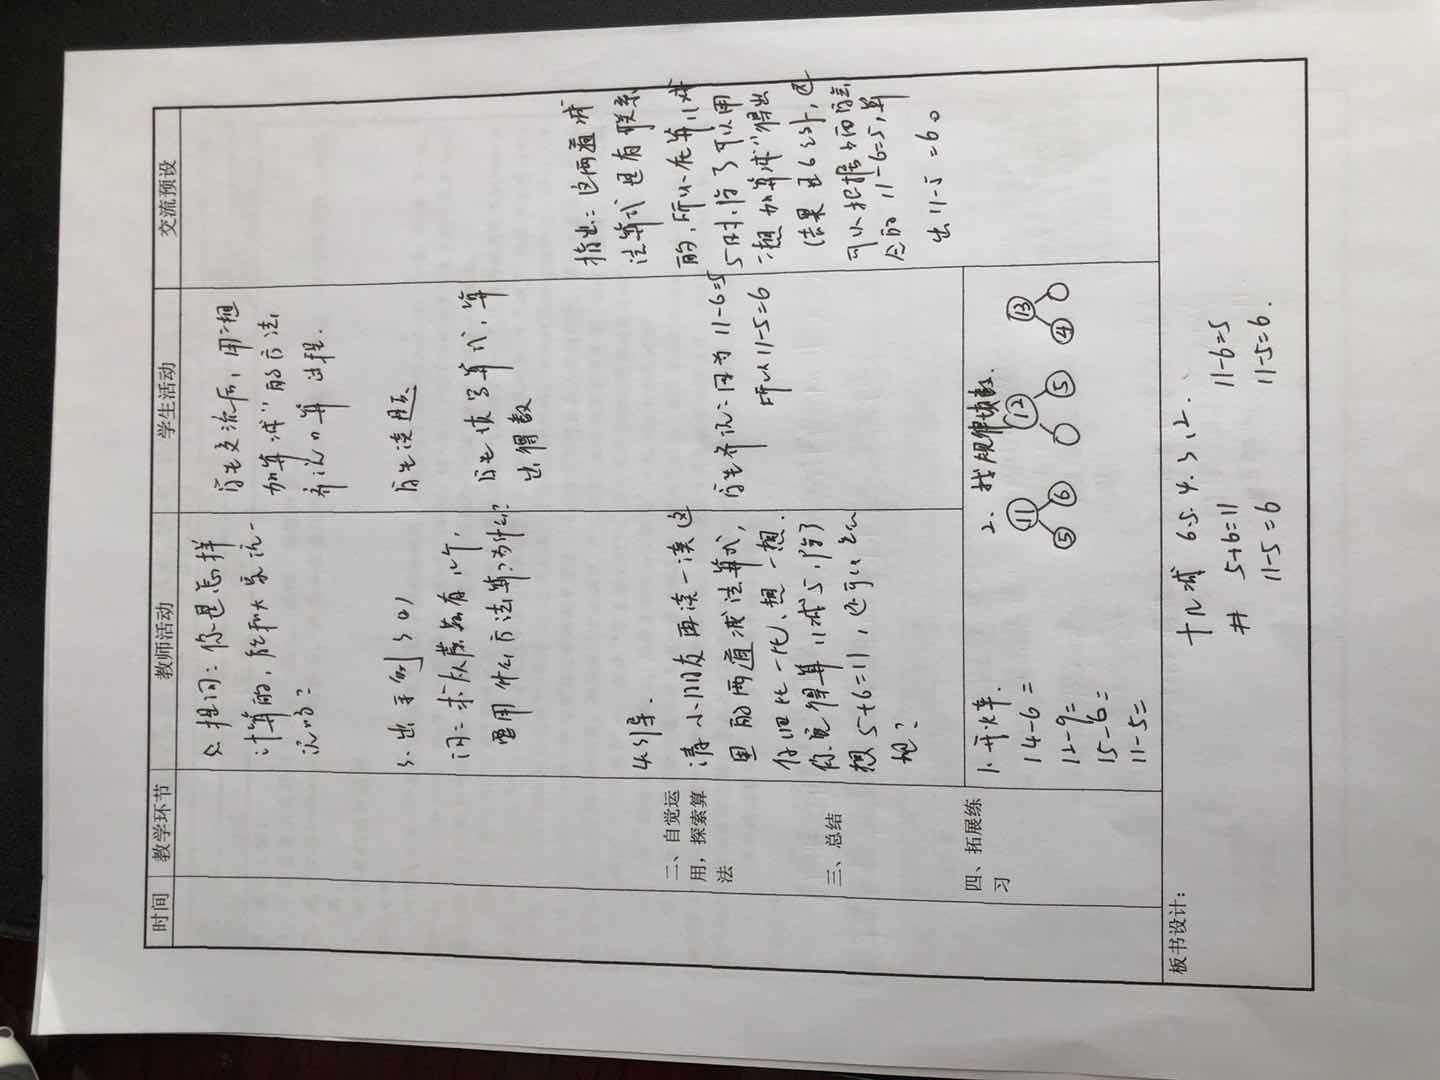 时间
教学环节
教师活动
学生活动
交流预设
提问：你是怎样
计算的，能和大家说一
说吗？
3. 出示例3（2）
问：求从蘑菇有几个，
要用什么方法算？为什么？
4. 引导.
请小朋友再读一读这
里的两道减法算式，
仔细比一比、想一想.
你觉得算11减5,除了
想5+6=11，还可以怎么
想？
学生交流后，用“想
加算减”的方法
并说口算过程.
学生读题
学生填写算式，算
出得数
学生齐说：因为11-6=5
所以11-5=6
指出：这两道减
法算式也有联系
的，所以在算11减
5时，除了可以用
“想加算减”得出
结果是6之外，还
可以根据上面的
11-6=5，算
出11-5=6。
二、自觉运
用，探索算
法
三、总结
四、拓展练
习
1. 开火车.
14-6=
12-9=
15-6=
11-5=
2、找规律填数.
11
5 6
12
5
13
4
板书设计：
十几减 6.5.4.3.2.
5+6=11
11-5=6
11-6=5
11-5=6.